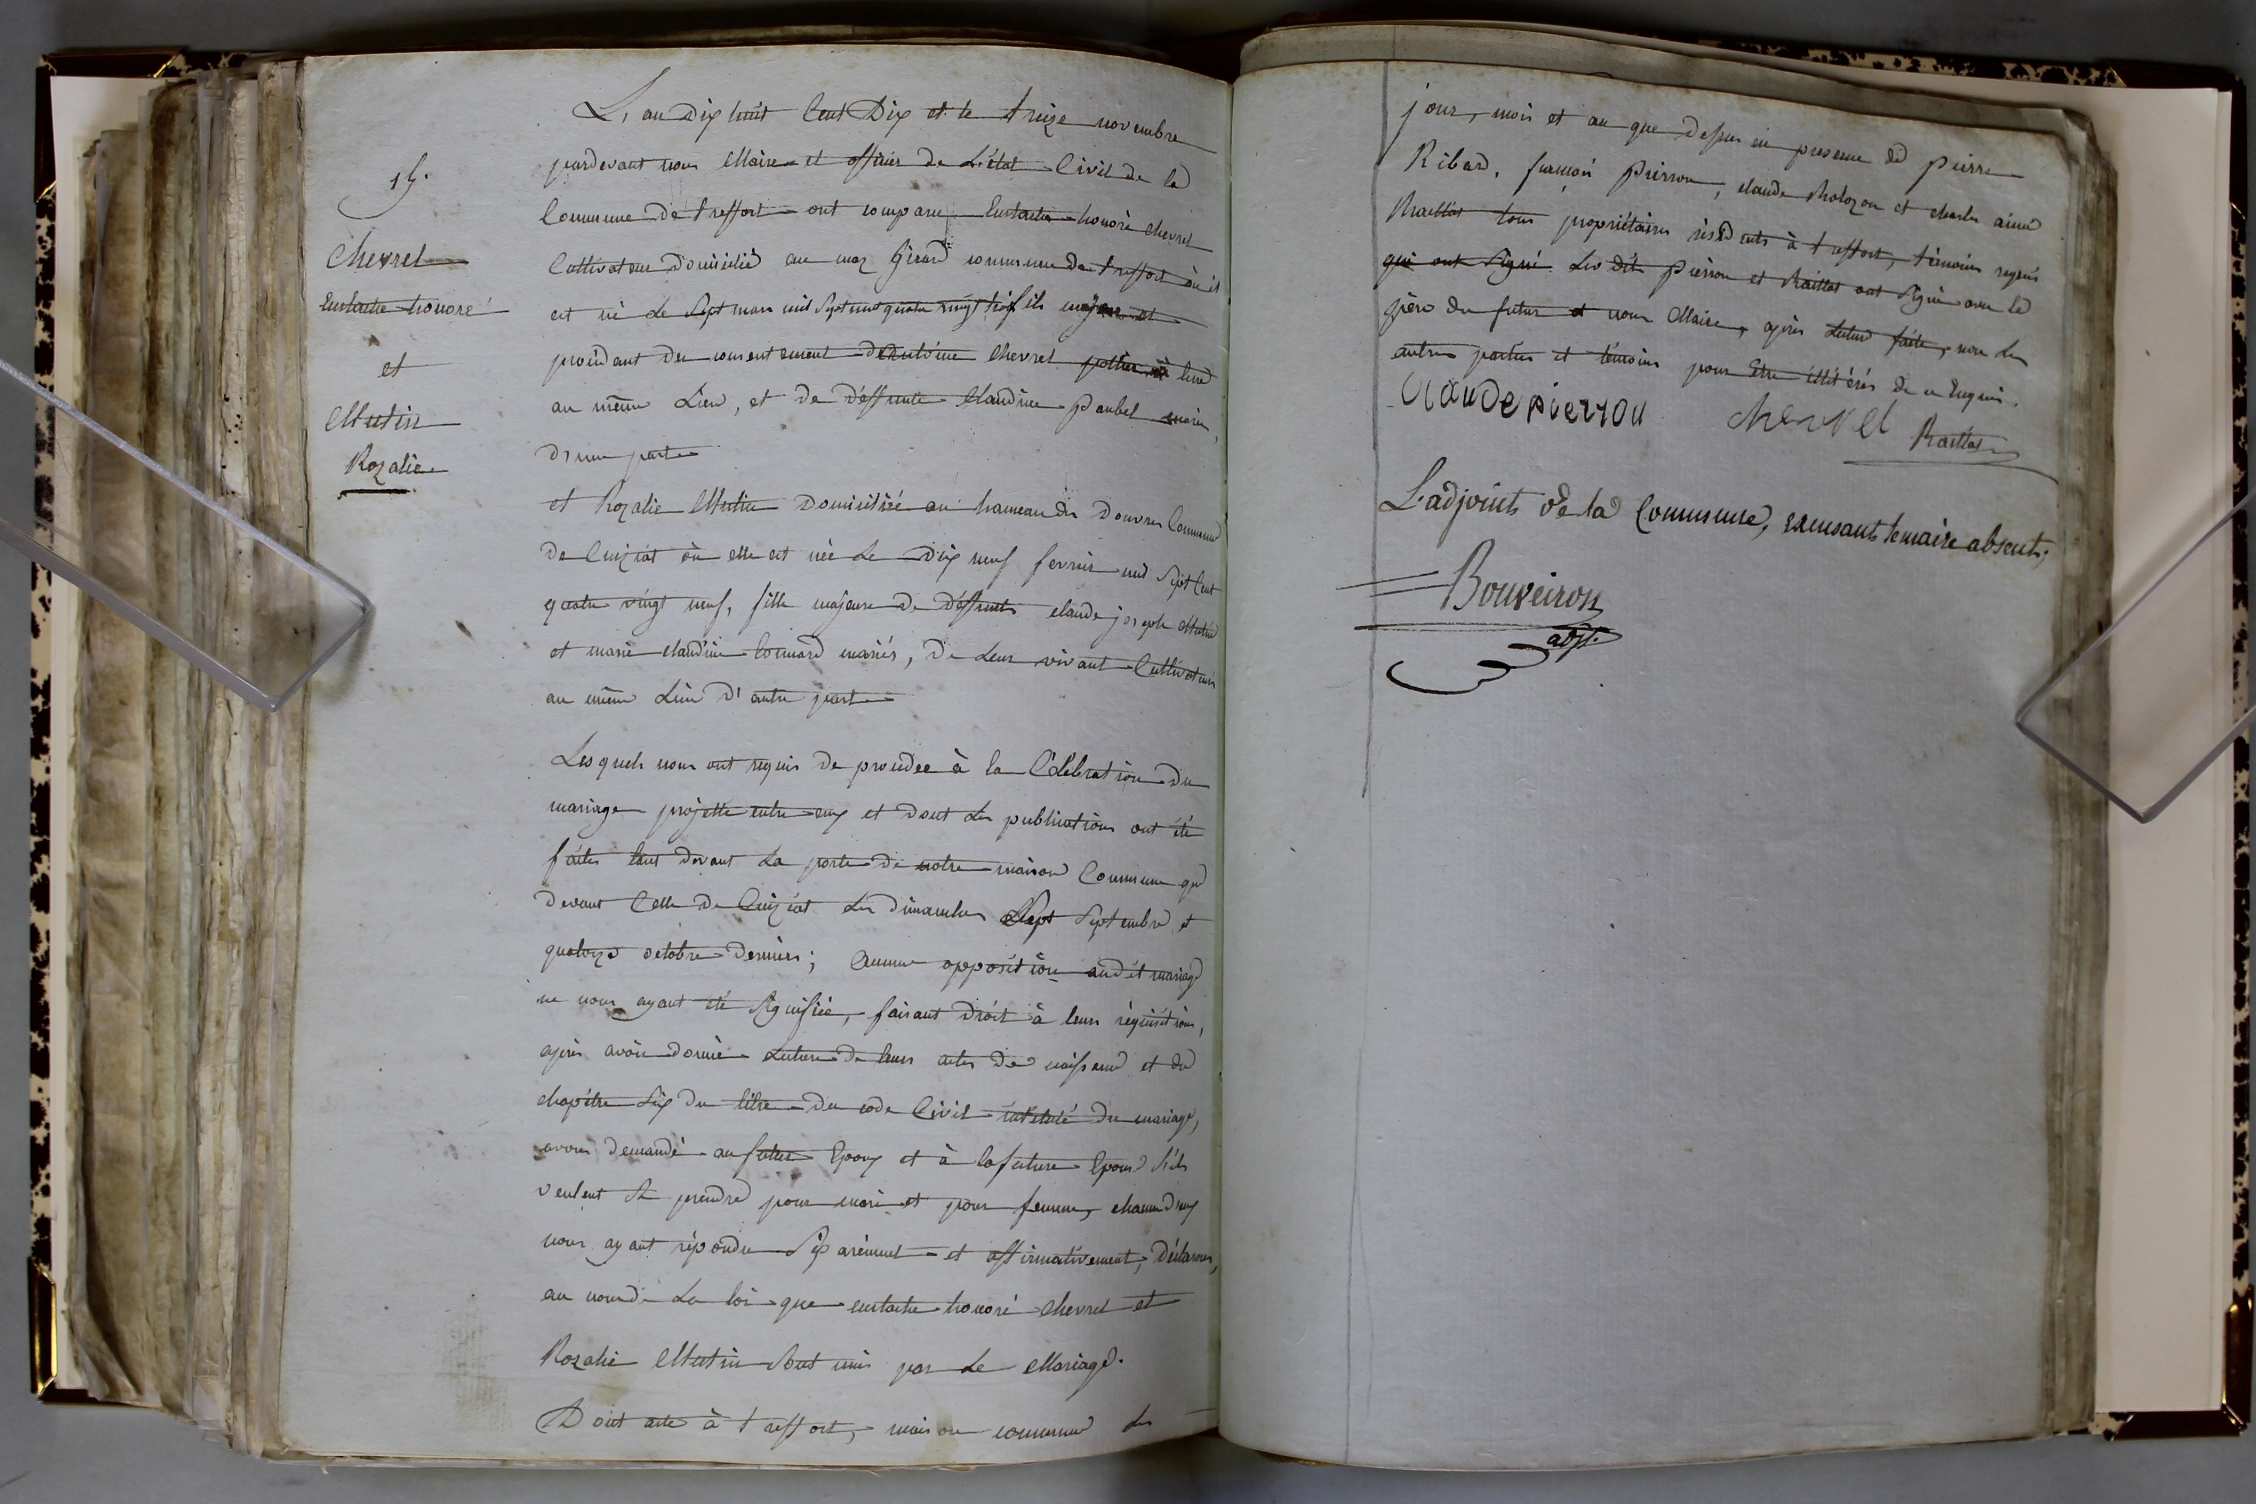 L'an Dix huit Cent Dix et le treize novembre
pardevant nous Maire et officier de L'état Civil de la
Commune de treffort ont comparu Eustache honoré chevrel
Cultivateur domicilié au maz Girard commune de treffort où il
est né Le Sept mars mil Sept cent quatre vingt fils majeur et
procédant du consentement d'Antoine Chevrel
au même Lieu, et de déffunte Claudine Paubel mariés,
d'une part
et Rozalie Mutin Domiciliée au hameau de Douvres Commune
de Cuiziat où elle est née Le Dix neuf fevrier mil Sept Cent
quatre vingt neuf, fille majeure de déffunts claude joseph Mutin
et marie claudine mariés, de Leur vivant Cultivateurs
au même Lieu d'autre part
Lesquels nous ont requis de procéder à la Célébration du
mariage projetté entre eux et dont Les publications ont été
faites tant devant La porte de notre maison Commune que
devant Celle de Cuiziat Les dimanches Sept Septembre et
quatorze octobre derniers; Aucune opposition audit mariage
ne nous ayant été Signifiée, faisant droit à leurs réquisitions,
après avoir donné Lecture de leurs actes de naissance et du
chapitre Six du titre du code Civil intitulé du mariage,
avons demandé au futur Epoux et à la future Epouse S'ils
veulent Se prendre pour mari et pour femme, chacun d'eux
nous ayant répondu Séparément et affirmativement, Déclarons,
au nom de La loi que eustache honoré chevrel et
Rozalie Mutin Sont unis par Le Mariage.
Dont acte à treffort, maison commune Les
15.
Chevrel
Eustache honoré
et
Mutin
Rozalie
jour, mois et an que dessus en presence de pierre
Ribard, françois Pierron, claude Molozon et charles aimé
Maillot tous propriétaires résidents à treffort, témoins requis
qui ont Signé Les dits Pierron et Maillot ont Signé avec le
père du futur et nous Maire, après Lecture faite, non Les
autres parties et témoins pour Etre illitérés de ce Enquis.
Claude pierrou chervel
L'adjoint de la Commune, excusant le maire absent;
Bouveiron
adjt.